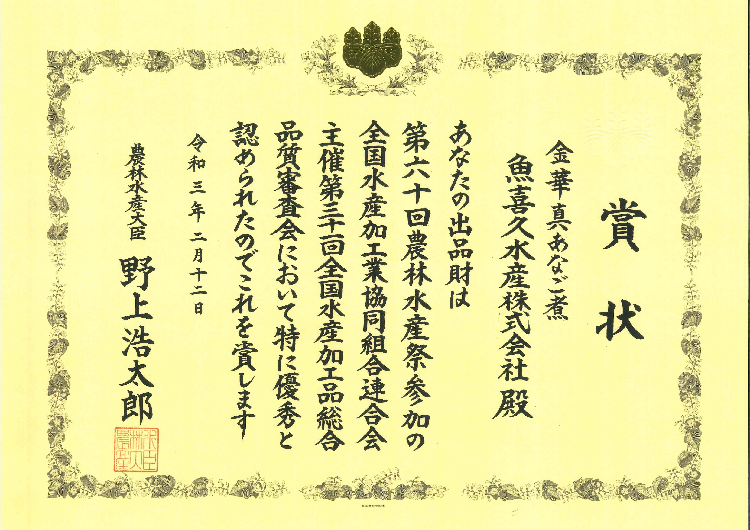 賞状
金華真あなご煮
魚喜久水産株式会社殿
あなたの出品財は
第六十回農林水産祭参加の
全国水産加工業協同組合連合会
主催第三十一回全国水産加工品総合
品質審査会において特に優秀と
認められたのでこれを賞します
令和三年二月十二日
農林水産大臣
野上浩太郎